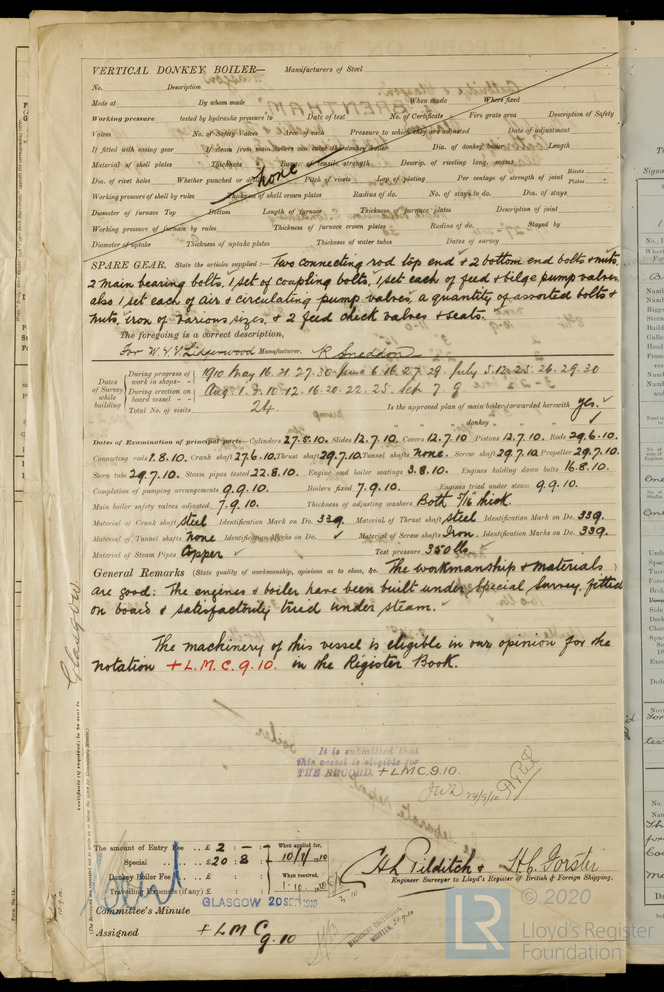 VERTICAL DONKEY BOILER— Manufacturers of Steel
No. Description
Made at By whom made When made Where fixed
Working pressure tested by hydraulic pressure to Date of test No. of Certificate Fire grate area Description of Safety
Valves No. of Safety Valves Area of each Pressure to which they are adjusted Date of adjustment
If fitted with casing gear If steam from main boilers can enter the donkey boiler Dia. of donkey boiler Length
Material of shell plates Thickness Range of tensile strength Descrip. of riveting long. seams
Dia. of rivet holes Whether punched or drilled Pitch of rivets Lap of plating Per centage of strength of joint Rivets Plates
none
Working pressure of shell by rules Thickness of shell crown plates Radius of do. No. of stays to do. Dia. of stays
Diameter of furnace Top Bottom Length of furnace Thickness of furnace plates Description of joint
Working pressure of furnace by rules Thickness of furnace crown plates Radius of do. Stayed by
Diameter of uptake Thickness of uptake plates Thickness of water tubes Dates of survey
SPARE GEAR. State the articles supplied:— Two connecting rod top end & 2 bottom end bolts & nuts,
2 main bearing bolts, 1 set of coupling bolts, 1 set each of feed & bilge pump valves
also 1 set each of air & circulating pump valves, a quantity of assorted bolts &
nuts, iron of various sizes, & 2 feed check valves & seats.
The foregoing is a correct description,
For W. V. V. Lidgerwood Manufacturer. R Sneddon
Dates of Survey while building
During progress of work in shops - - 1910 May 16. 21. 27. 30 June 6. 16. 27. 29. July 5. 12. 25. 26. 29. 30
During erection on board vessel - - Aug 1. 8. 10. 12. 16. 20. 22. 25. Sep 7. 9.
Total No. of visits 24. Is the approved plan of main boiler forwarded herewith yes.
" " " donkey " " "
Dates of Examination of principal parts—Cylinders 27.5.10. Slides 12.7.10. Covers 12.7.10 Pistons 12.7.10. Rods 29.6.10.
Connecting rods 1.8.10. Crank shaft 27.6.10. Thrust shaft 29.7.10. Tunnel shafts none. Screw shaft 29.7.10. Propeller 29.7.10.
Stern tube 29.7.10. Steam pipes tested 22.8.10. Engine and boiler seatings 3.8.10. Engines holding down bolts 16.8.10.
Completion of pumping arrangements 9.9.10. Boilers fixed 7.9.10. Engines tried under steam 9.9.10.
Main boiler safety valves adjusted 7.9.10. Thickness of adjusting washers Both 5/16" thick.
Material of Crank shaft Steel Identification Mark on Do. 339. Material of Thrust shaft Steel Identification Mark on Do. 339.
Material of Tunnel shafts none Identification Marks on Do. Material of Screw shafts Iron. Identification Marks on Do. 339.
Material of Steam Pipes Copper Test pressure 350 lbs.
General Remarks (State quality of workmanship, opinions as to class, &c. The workmanship & materials
are good: The engines & boiler have been built under Special Survey, fitted
on board & satisfactorily tried under steam.
The machinery of this vessel is eligible in our opinion for the
notation + L.M.C. 9.10. in the Register Book.
Glasgow
Certificate (if required) to be sent to
It is submitted that
this vessel is eligible for
THE RECORD. + LMC. 9.10.
The amount of Entry Fee .. £ 2 : – :
Special .. £ 20 : 8 :
Donkey Boiler Fee .. £ : :
Travelling Expenses (if any) £ : :
When applied for,
When received,
1.10.1910
Engineer Surveyor to Lloyd's Register of British & Foreign Shipping.
Committee's Minute GLASGOW 20 SEP 1910
Assigned + L M C 9.10
MACHINERY CERTIFICATE WRITTEN.
LR © 2020
Lloyd's Register
Foundation